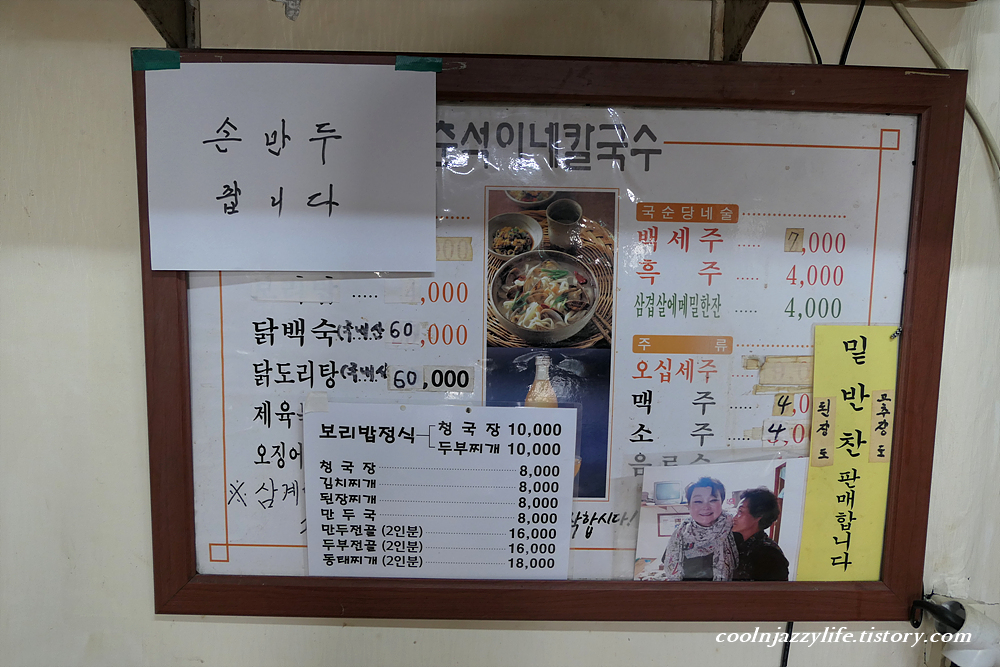 손 만 두
팝 니 다
춘석이네칼국수
,000
닭백숙(국내산 60,000
닭도리탕(국내산 60,000
제육
오징어
※ 삼계
보리밥정식 청국장 10,000
두부찌개 10,000
청국장 8,000
김치찌개 8,000
된장찌개 8,000
만두국 8,000
만두전골 (2인분) 16,000
두부전골 (2인분) 16,000
동태찌개 (2인분) 18,000
국순당네술
백세주 ..... 7,000
흑 주 ..... 4,000
삼겹살에메밀한잔 ..... 4,000
주 류
오십세주
맥 주 4,0
소 주 4,0
음료수
합시다!
밑반찬 판매합니다
된장도
고추장도
coolnjazzylife.tistory.com